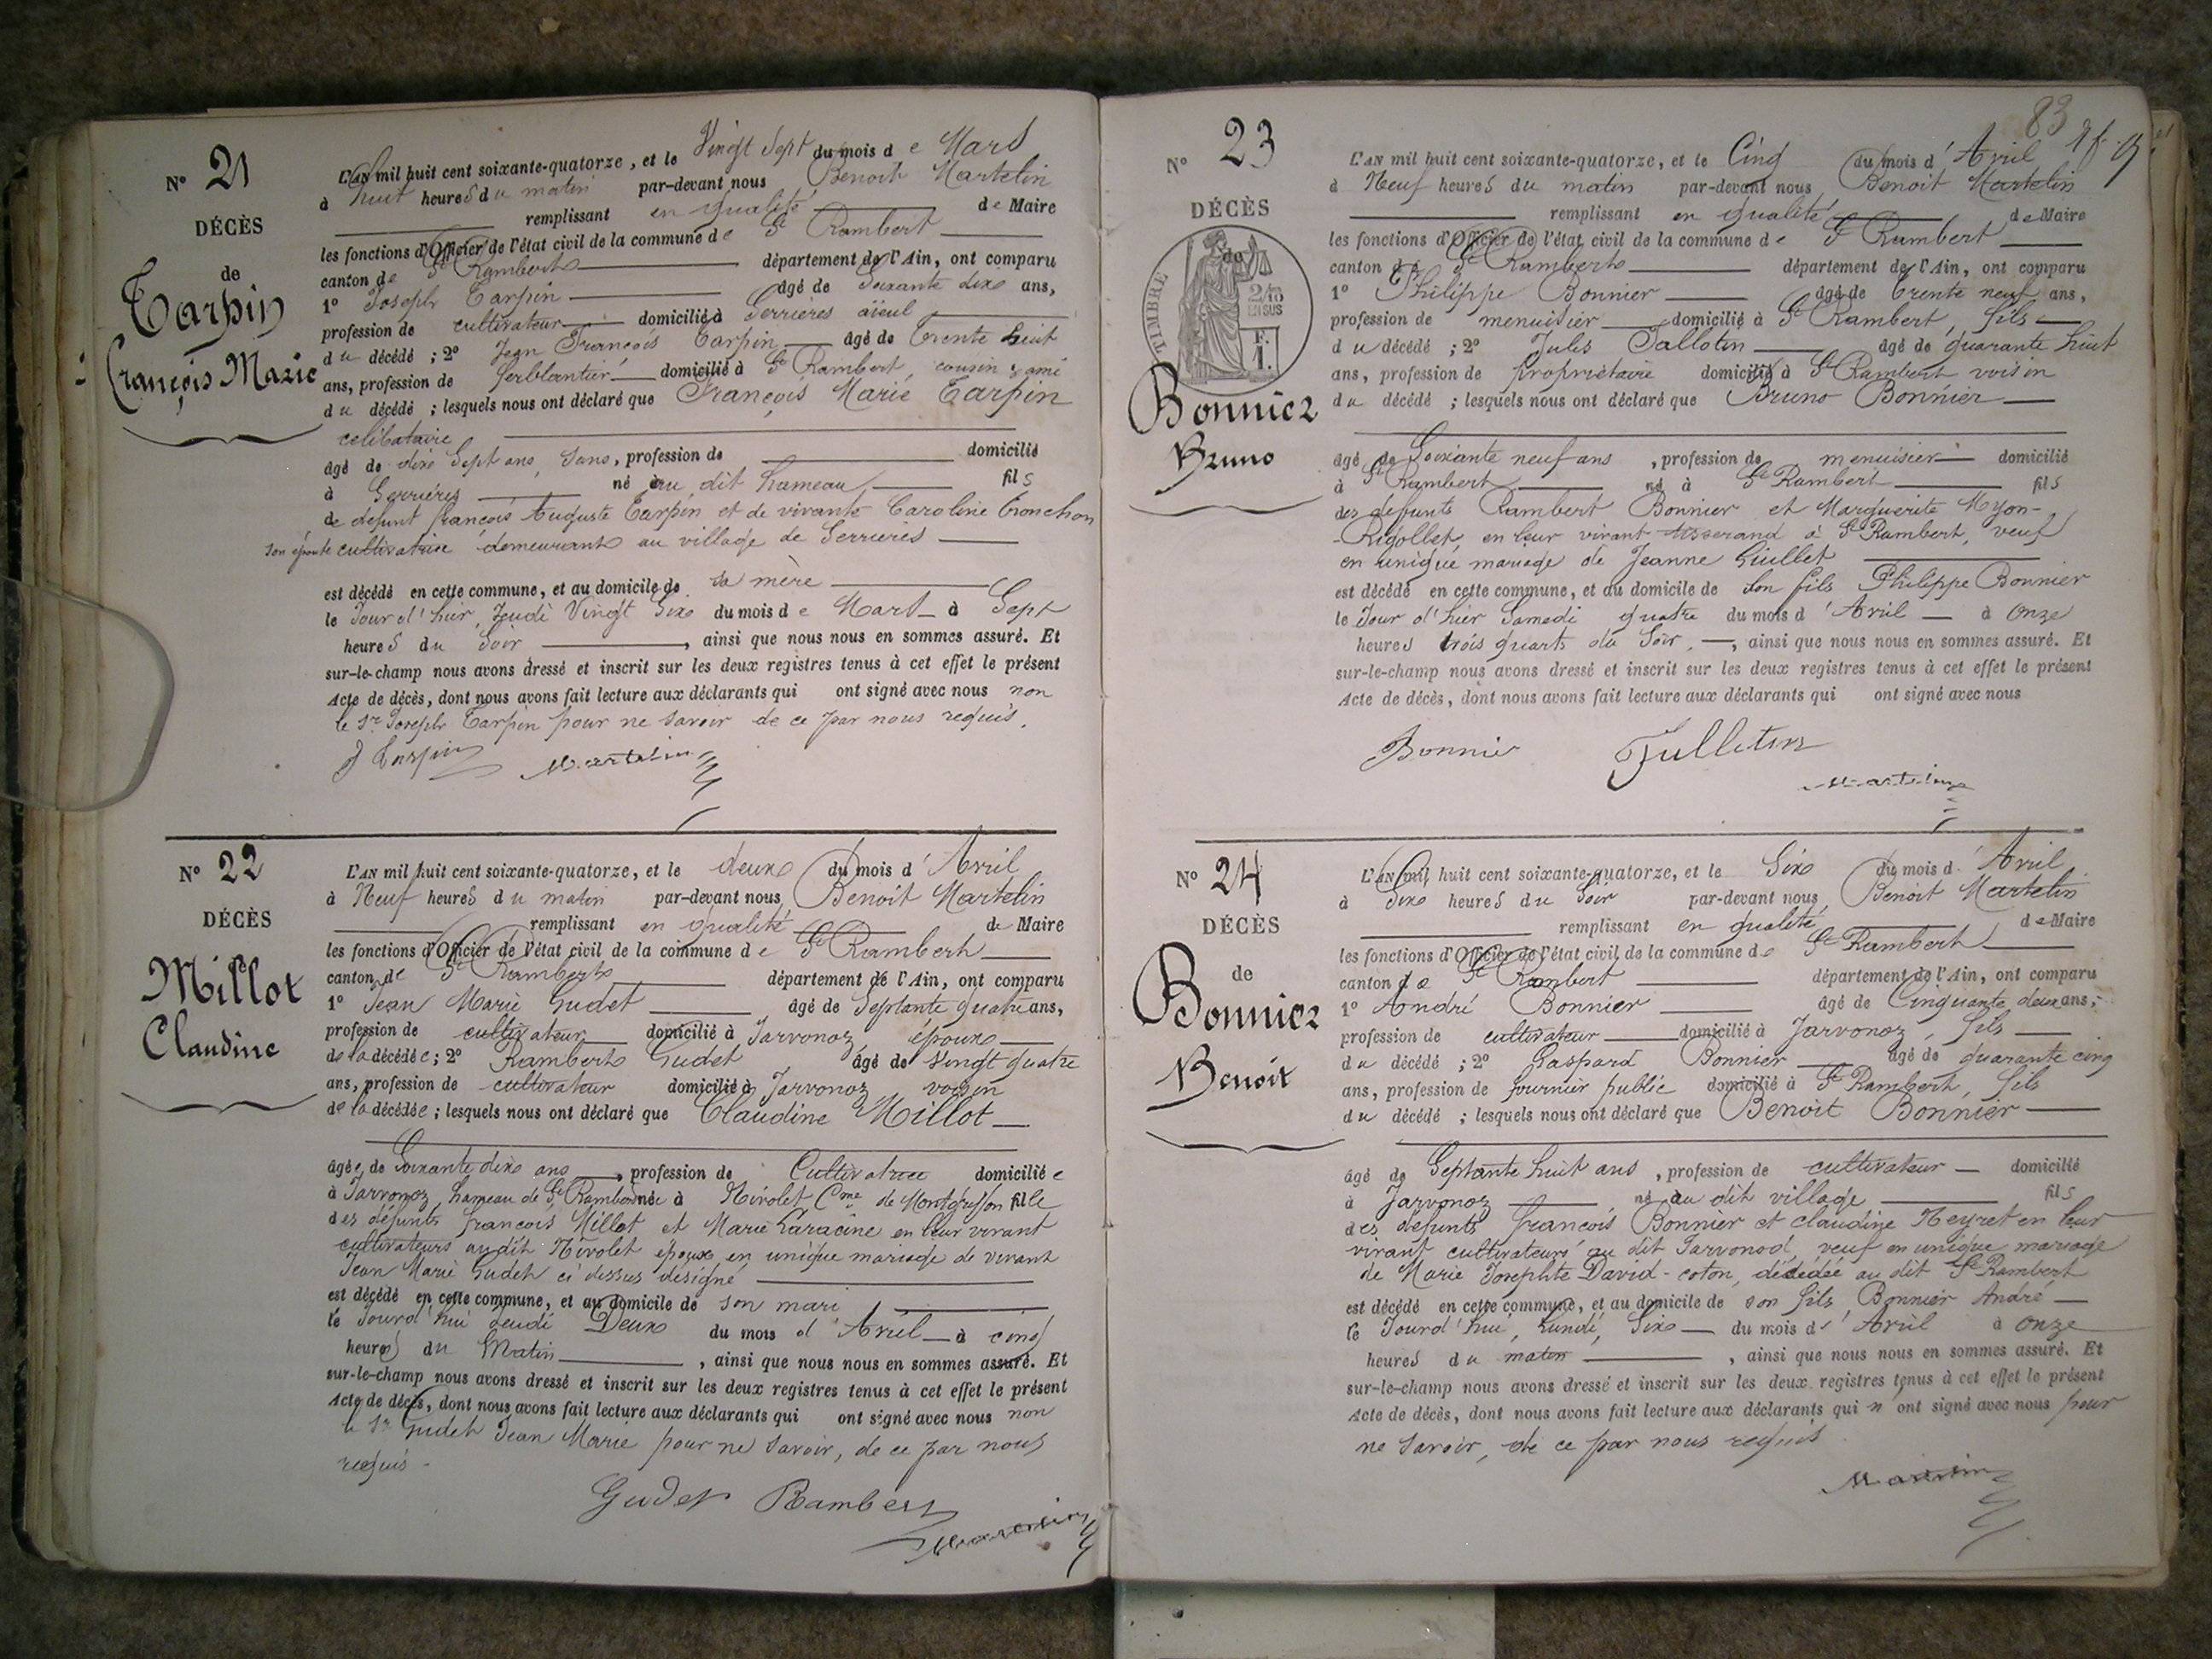 N° 21
DÉCÈS
de
Tarpin
François Marie
L'AN mil huit cent soixante-quatorze, et le Vingt Sept du mois de Mars
à huit heures du matin par-devant nous Benoit Martelin
remplissant en qualité de Maire
les fonctions d'Officier de l'état civil de la commune de St Rambert
canton de St Rambert département de l'Ain, ont comparu
1° Joseph Tarpin âgé de Soixante dix ans,
profession de cultivateur domicilié à Serrières aïeul
du décédé ; 2° Jean François Tarpin âgé de trente huit
ans, profession de ferblantier domicilié à St Rambert, cousin & ami
du décédé ; lesquels nous ont déclaré que François Marie Tarpin
celibataire
âgé de dix Sept ans, Sans, profession de domicilié
à Serrières né au dit hameau fils
de defunt françois Auguste Tarpin et de vivante Caroline Tronchon
son épouse cultivatrice demeurant au village de Serrières
est décédé en cette commune, et au domicile de sa mère
le Jour d'hier, Jeudi Vingt Six du mois de Mars à Sept
heures du Soir, ainsi que nous nous en sommes assuré. Et
sur-le-champ nous avons dressé et inscrit sur les deux registres tenus à cet effet le présent
Acte de décès, dont nous avons fait lecture aux déclarants qui ont signé avec nous non
le Sr Joseph Tarpin pour ne savoir de ce par nous requis.
J Tarpin Martelin
N° 22
DÉCÈS
Millot
Claudine
L'AN mil huit cent soixante-quatorze, et le deux du mois d'Avril
à Neuf heures du matin par-devant nous Benoit Martelin
remplissant en qualité de Maire
les fonctions d'Officier de l'état civil de la commune de St Rambert
canton de St Rambert département de l'Ain, ont comparu
1° Jean Marie Gudet âgé de Septante quatre ans,
profession de cultivateur domicilié à Javonoz, époux
de la décédée ; 2° Rambert Gudet âgé de vingt quatre
ans, profession de cultivateur domicilié à Javornoz, voisin
de la décédée ; lesquels nous ont déclaré que Claudine Millot
âgée de Soixante dix ans, profession de Cultivatrice domiciliée
à Javornoz, hameau de St Rambert née à Nivolet Cne de Montgriffon fille
des défunts françois Millot et Marie Laracine en leur vivant
cultivateurs au dit Nivolet époux en unique mariage de vivant
Jean Marie Gudet ci dessus désigné
est décédé en cette commune, et au domicile de son mari
le Jourd'hui Jeudi Deux du mois d'Avril à cinq
heures du Matin, ainsi que nous nous en sommes assuré. Et
sur-le-champ nous avons dressé et inscrit sur les deux registres tenus à cet effet le présent
Acte de décès, dont nous avons fait lecture aux déclarants qui ont signé avec nous non
le Sr Gudet Jean Marie pour ne savoir, de ce par nous
requis.
Gudet Rambert
Martelin
83
N° 23
DÉCÈS
de
TIMBRE
2/10
EN SUS
F.
1.
Bonnier
Bruno
L'AN mil huit cent soixante-quatorze, et le Cinq du mois d'Avril
à Neuf heures du matin par-devant nous Benoit Martelin
remplissant en qualité de Maire
les fonctions d'Officier de l'état civil de la commune de St Rambert
canton de St Rambert département de l'Ain, ont comparu
1° Philippe Bonnier âgé de trente neuf ans,
profession de menuisier domicilié à St Rambert, fils
du décédé ; 2° Jules Tallotin âgé de quarante huit
ans, profession de propriétaire domicilié à St Rambert voisin
du décédé ; lesquels nous ont déclaré que Bruno Bonnier
âgé de Soixante neuf ans, profession de menuisier domicilié
à St Rambert né à St Rambert fils
des défunts Rambert Bonnier et Marguerite Myon-
-Rigollet, en leur vivant tisserand à St Rambert, veuf
en unique mariage de Jeanne Guillet
est décédé en cette commune, et au domicile de Son fils Philippe Bonnier
le Jour d'hier Samedi quatre du mois d'Avril à Onze
heures trois quarts du Soir, ainsi que nous nous en sommes assuré. Et
sur-le-champ nous avons dressé et inscrit sur les deux registres tenus à cet effet le présent
Acte de décès, dont nous avons fait lecture aux déclarants qui ont signé avec nous
Bonnier
Martelin
N° 24
DÉCÈS
de
Bonnier
Benoit
L'AN mil huit cent soixante-quatorze, et le Six du mois d'Avril
à Six heures du Soir par-devant nous Benoit Martelin
remplissant en qualité de Maire
les fonctions d'Officier de l'état civil de la commune de St Rambert
canton de St Rambert département de l'Ain, ont comparu
1° André Bonnier âgé de Cinquante deux ans,
profession de cultivateur domicilié à Javornoz, fils
du décédé ; 2° Gaspard Bonnier âgé de quarante cinq
ans, profession de fournier public domicilié à St Rambert, fils
du décédé ; lesquels nous ont déclaré que Benoit Bonnier
âgé de Septante huit ans, profession de cultivateur domicilié
à Javornoz né au dit village fils
des défunts françois Bonnier et claudine Neyret en leur
vivant cultivateurs au dit Javornod, veuf en unique mariage
de Marie Josephte David-coton, décédée au dit St Rambert
est décédé en cette commune, et au domicile de son fils, Bonnier André
le Jourd'hui, Lundi, Six du mois d'Avril à onze
heures du matin, ainsi que nous nous en sommes assuré. Et
sur-le-champ nous avons dressé et inscrit sur les deux registres tenus à cet effet le présent
Acte de décès, dont nous avons fait lecture aux déclarants qui n'ont signé avec nous pour
ne savoir, de ce par nous requis
Martelin